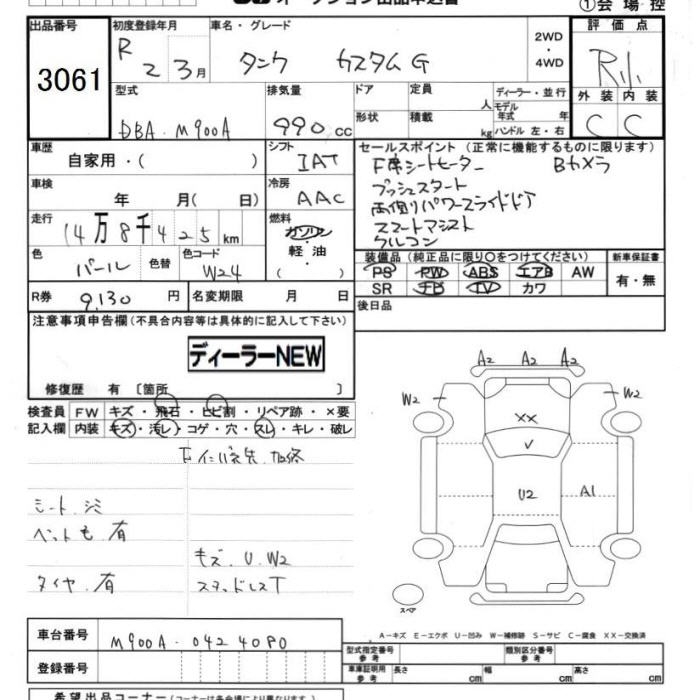 オークション出品申込書
①会場控
出品番号
3061
初度登録年月
R 2 3月
車名・グレード
タンク カスタムG
2WD
・
4WD
評価点
R小
型式
DBA-M900A
排気量
990 cc
ドア
定員
人
形状
積載
kg
ディーラー・並行
モデル
年式 年
ハンドル 左・右
外装 内装
C C
車歴
自家用・( )
シフト
IAT
車検
年 月( 日)
冷房
AAC
走行
14万8千425km
燃料
ガソリン
・
軽・油
( )
色
パール
色替
色コード
W24
R券 9,130 円
名変期限 月 日
セールスポイント (正常に機能するものに限ります)
F席シートヒーター Bカメラ
プッシュスタート
両側パワースライドドア
スマートアシスト
クルコン
装備品 (純正品に限り○をつけてください)
PS PW ABS エアB AW
SR ナビ TV カワ
新車保証書
有・無
後日品
注意事項申告欄 (不具合内容等は具体的に記入して下さい)
ディーラーNEW
修復歴 有 〔箇所 〕
検査員
記入欄
FW キズ・飛石・ヒビ割・リペア跡・×要
内装 キズ・汚レ・コゲ・穴・スレ・キレ・破レ
シート.シミ
ペット毛 有
キズ.U.W2
タイヤ.有
スタッドレスT
A2 A2 A2
W2 W2
XX
V
U2 A1
スペア
A－キズ E－エクボ U－凹み W－補修跡 S－サビ C－腐食 XX－交換済
車台番号 M900A-0424080
登録番号
型式指定番号
参考
類別区分番号
参考
車庫証明用
参考
長さ cm 幅 cm 高さ cm
希望出品コーナー (コーナーは各会場により異なります)